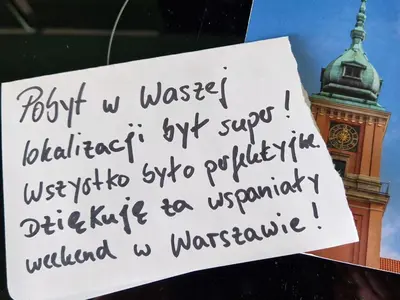 Pobyt w Waszej
lokalizacji był super!
Wszystko było perfekcyjne.
Dziękuję za wspaniały
weekend w Warszawie!